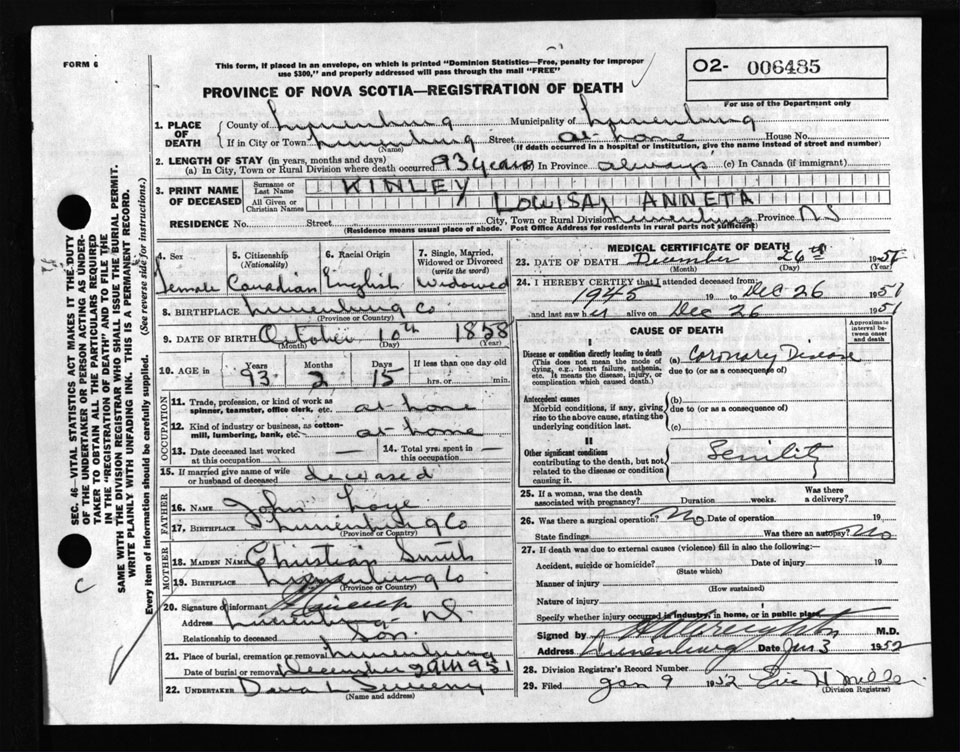 FORM 6
This form, if placed in an envelope, on which is printed "Dominion Statistics—Free, penalty for improper
use $300," and properly addressed will pass through the mail "FREE"
PROVINCE OF NOVA SCOTIA—REGISTRATION OF DEATH
O2- 006485
For use of the Department only
1. PLACE OF DEATH
County of Lunenburg Municipality of Lunenburg
If in City or Town Lunenburg Street at home House No.
(Name) (If death occurred in a hospital or institution, give the name instead of street and number)
2. LENGTH OF STAY (in years, months and days)
(a) In City, Town or Rural Division where death occurred 93 years (b) In Province always (c) In Canada (if immigrant)
3. PRINT NAME OF DECEASED
Surname or Last Name KINLEY
All Given or Christian Names LOUISA ANNETA
RESIDENCE No. Street City, Town or Rural Division Lunenburg Province NS
(Residence means usual place of abode. Post Office Address for residents in rural parts not sufficient)
4. Sex Female
5. Citizenship (Nationality) Canadian
6. Racial Origin English
7. Single, Married, Widowed or Divorced (write the word) Widowed
8. BIRTHPLACE Lunenburg Co
(Province or Country)
9. DATE OF BIRTH October 10th 1858
(Month) (Day) (Year)
10. AGE in Years 93 Months 2 Days 15 If less than one day old hrs. or min.
OCCUPATION
11. Trade, profession, or kind of work as spinner, teamster, office clerk, etc. at home
12. Kind of industry or business, as cotton-mill, lumbering, bank, etc. at home
13. Date deceased last worked at this occupation —
14. Total yrs. spent in this occupation —
15. If married give name of wife or husband of deceased deceased
FATHER
16. Name John Loye
17. Birthplace Lunenburg Co
(Province or Country)
MOTHER
18. MAIDEN NAME Christian Smith
19. BIRTHPLACE Lunenburg Co
(Province or Country)
20. Signature of informant
Address Lunenburg NS
Relationship to deceased Son
21. Place of burial, cremation or removal Lunenburg
Date of burial or removal December 29th 1951
22. UNDERTAKER Dana L Sweeny
(Name and address)
MEDICAL CERTIFICATE OF DEATH
23. DATE OF DEATH December 26th 1951
(Month) (Day) (Year)
24. I HEREBY CERTIFY that I attended deceased from:
1945 19 to Dec 26 1951
and last saw her alive on Dec 26 1951
CAUSE OF DEATH
Approximate interval between onset and death
I
Disease or condition directly leading to death
(This does not mean the mode of dying, e.g., heart failure, asthenia, etc. It means the disease, injury, or complication which caused death.)
(a) Coronary Disease
due to (or as a consequence of)
Antecedent causes
Morbid conditions, if any, giving rise to the above cause, stating the underlying condition last.
(b)
due to (or as a consequence of)
(c)
II
Other significant conditions
contributing to the death, but not related to the disease or condition causing it.
Senility
25. If a woman, was the death associated with pregnancy? Duration weeks. Was there a delivery?
26. Was there a surgical operation? No Date of operation 19
State findings Was there an autopsy? No
27. If death was due to external causes (violence) fill in also the following:—
Accident, suicide or homicide? Date of injury 19
(State which)
Manner of injury
(How sustained)
Nature of injury
Specify whether injury occurred in industry, in home, or in public place
Signed by M.D.
Address Lunenburg Date Jan 3 1952
28. Division Registrar's Record Number
29. Filed Jan 9 1952 Eric H Miller
(Division Registrar)
SEC. 46—VITAL STATISTICS ACT MAKES IT THE DUTY
OF THE UNDERTAKER OR PERSON ACTING AS UNDER-
TAKER TO OBTAIN ALL THE PARTICULARS REQUIRED
IN THE "REGISTRATION OF DEATH" AND TO FILE THE
SAME WITH THE DIVISION REGISTRAR WHO SHALL ISSUE THE BURIAL PERMIT.
WRITE PLAINLY WITH UNFADING INK. THIS IS A PERMANENT RECORD.
Every item of information should be carefully supplied. (See reverse side for instructions.)
C